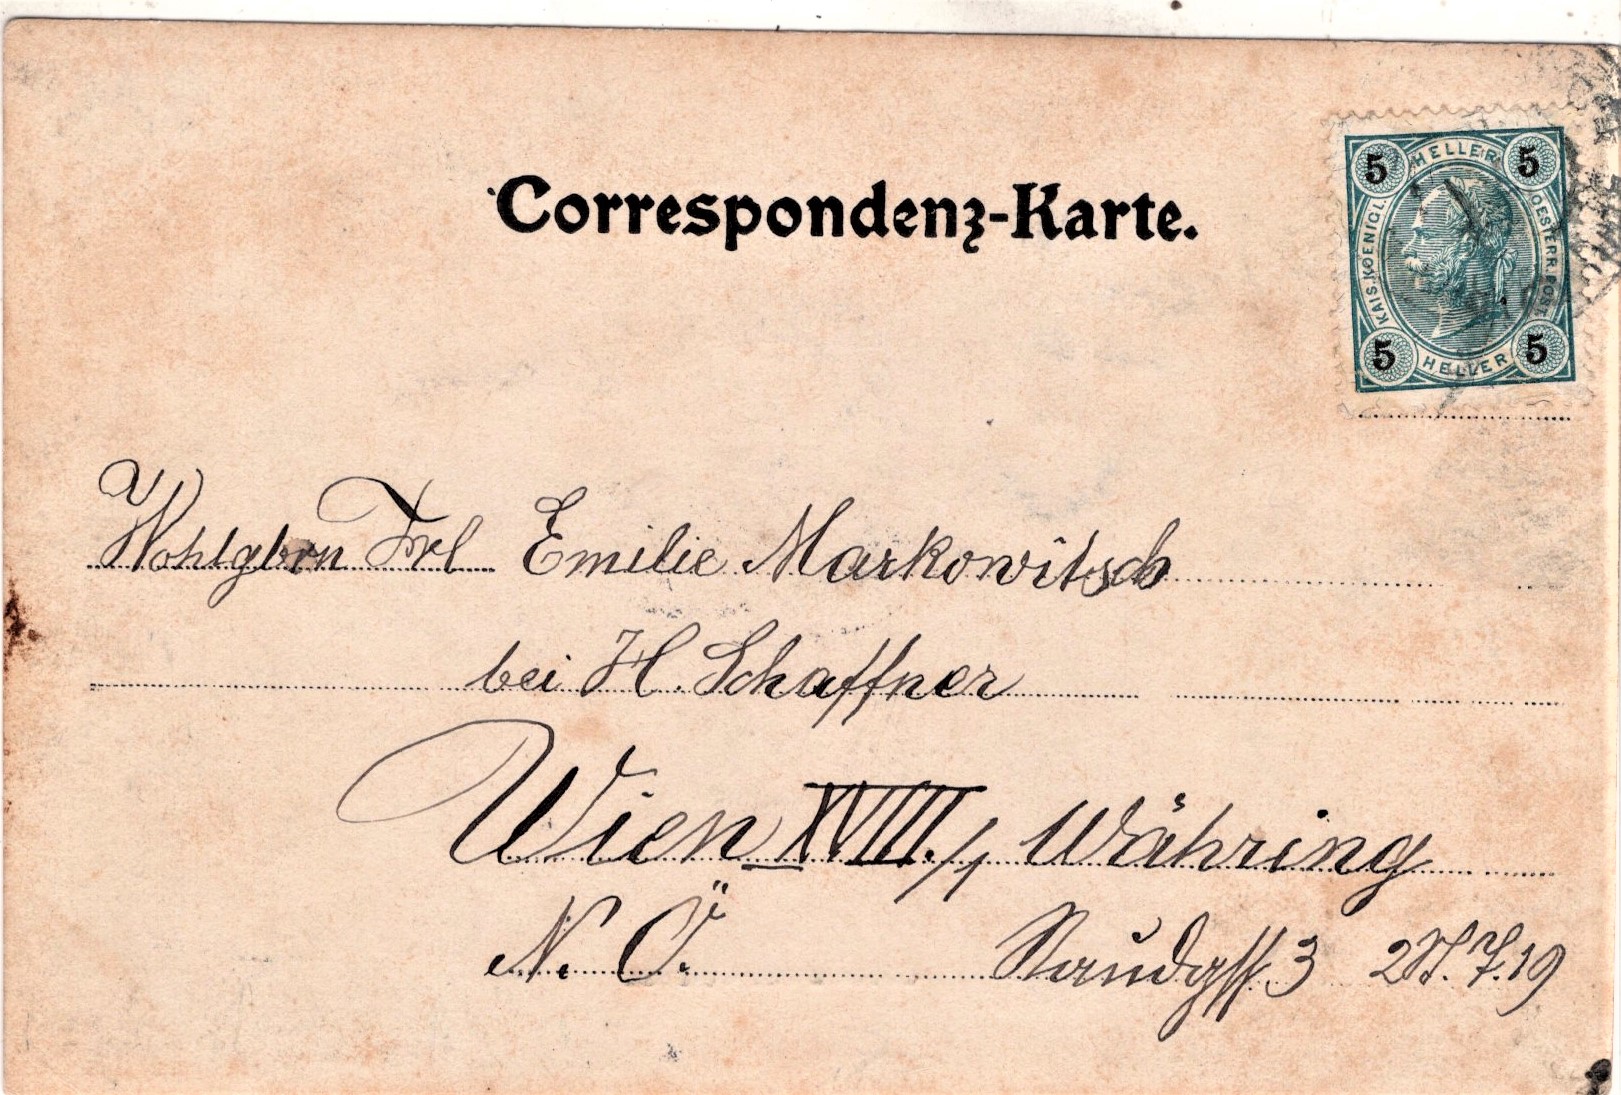 Correspondenz-Karte.
5 HELLER 5
KAIS. KOENIGL. OESTERR. POST.
5 HELLER 5
Wohlgbrn Frl Emilie Markowitsch
bei H. Schaffner
Wien XVIII./1 Währing
N. Ö. 3 2 St. 7. 19